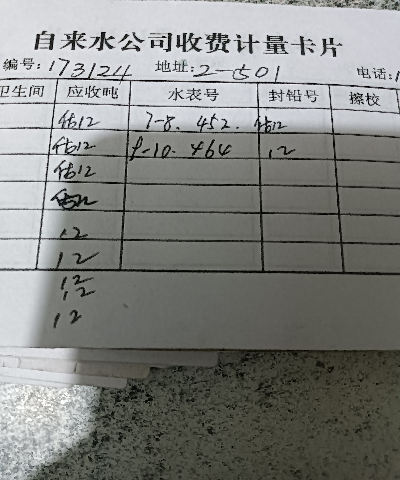 自来水公司收费计量卡片
编号:173124 地址:2-1501 电话:
卫生间 应收吨 水表号 封铅号 擦校
估12 7-8. 452. 估12
估12 9-10. 464 12
估12
估12
12
12
12
12
12